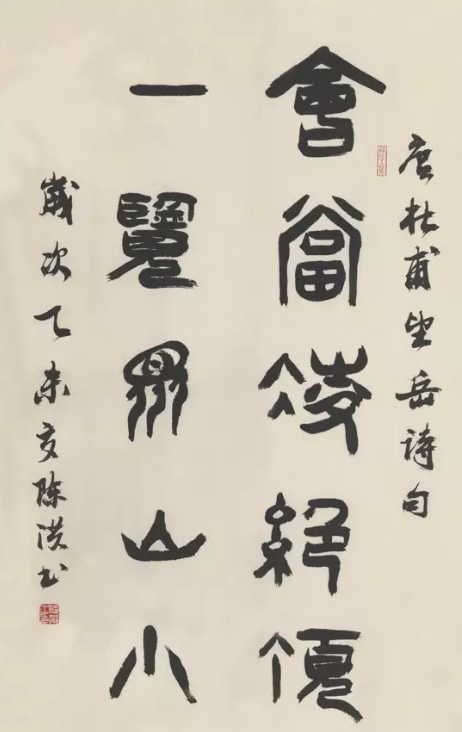 唐杜甫望岳詩句
會當凌絕頂
一覽眾山小
歲次乙未夏陳洪书